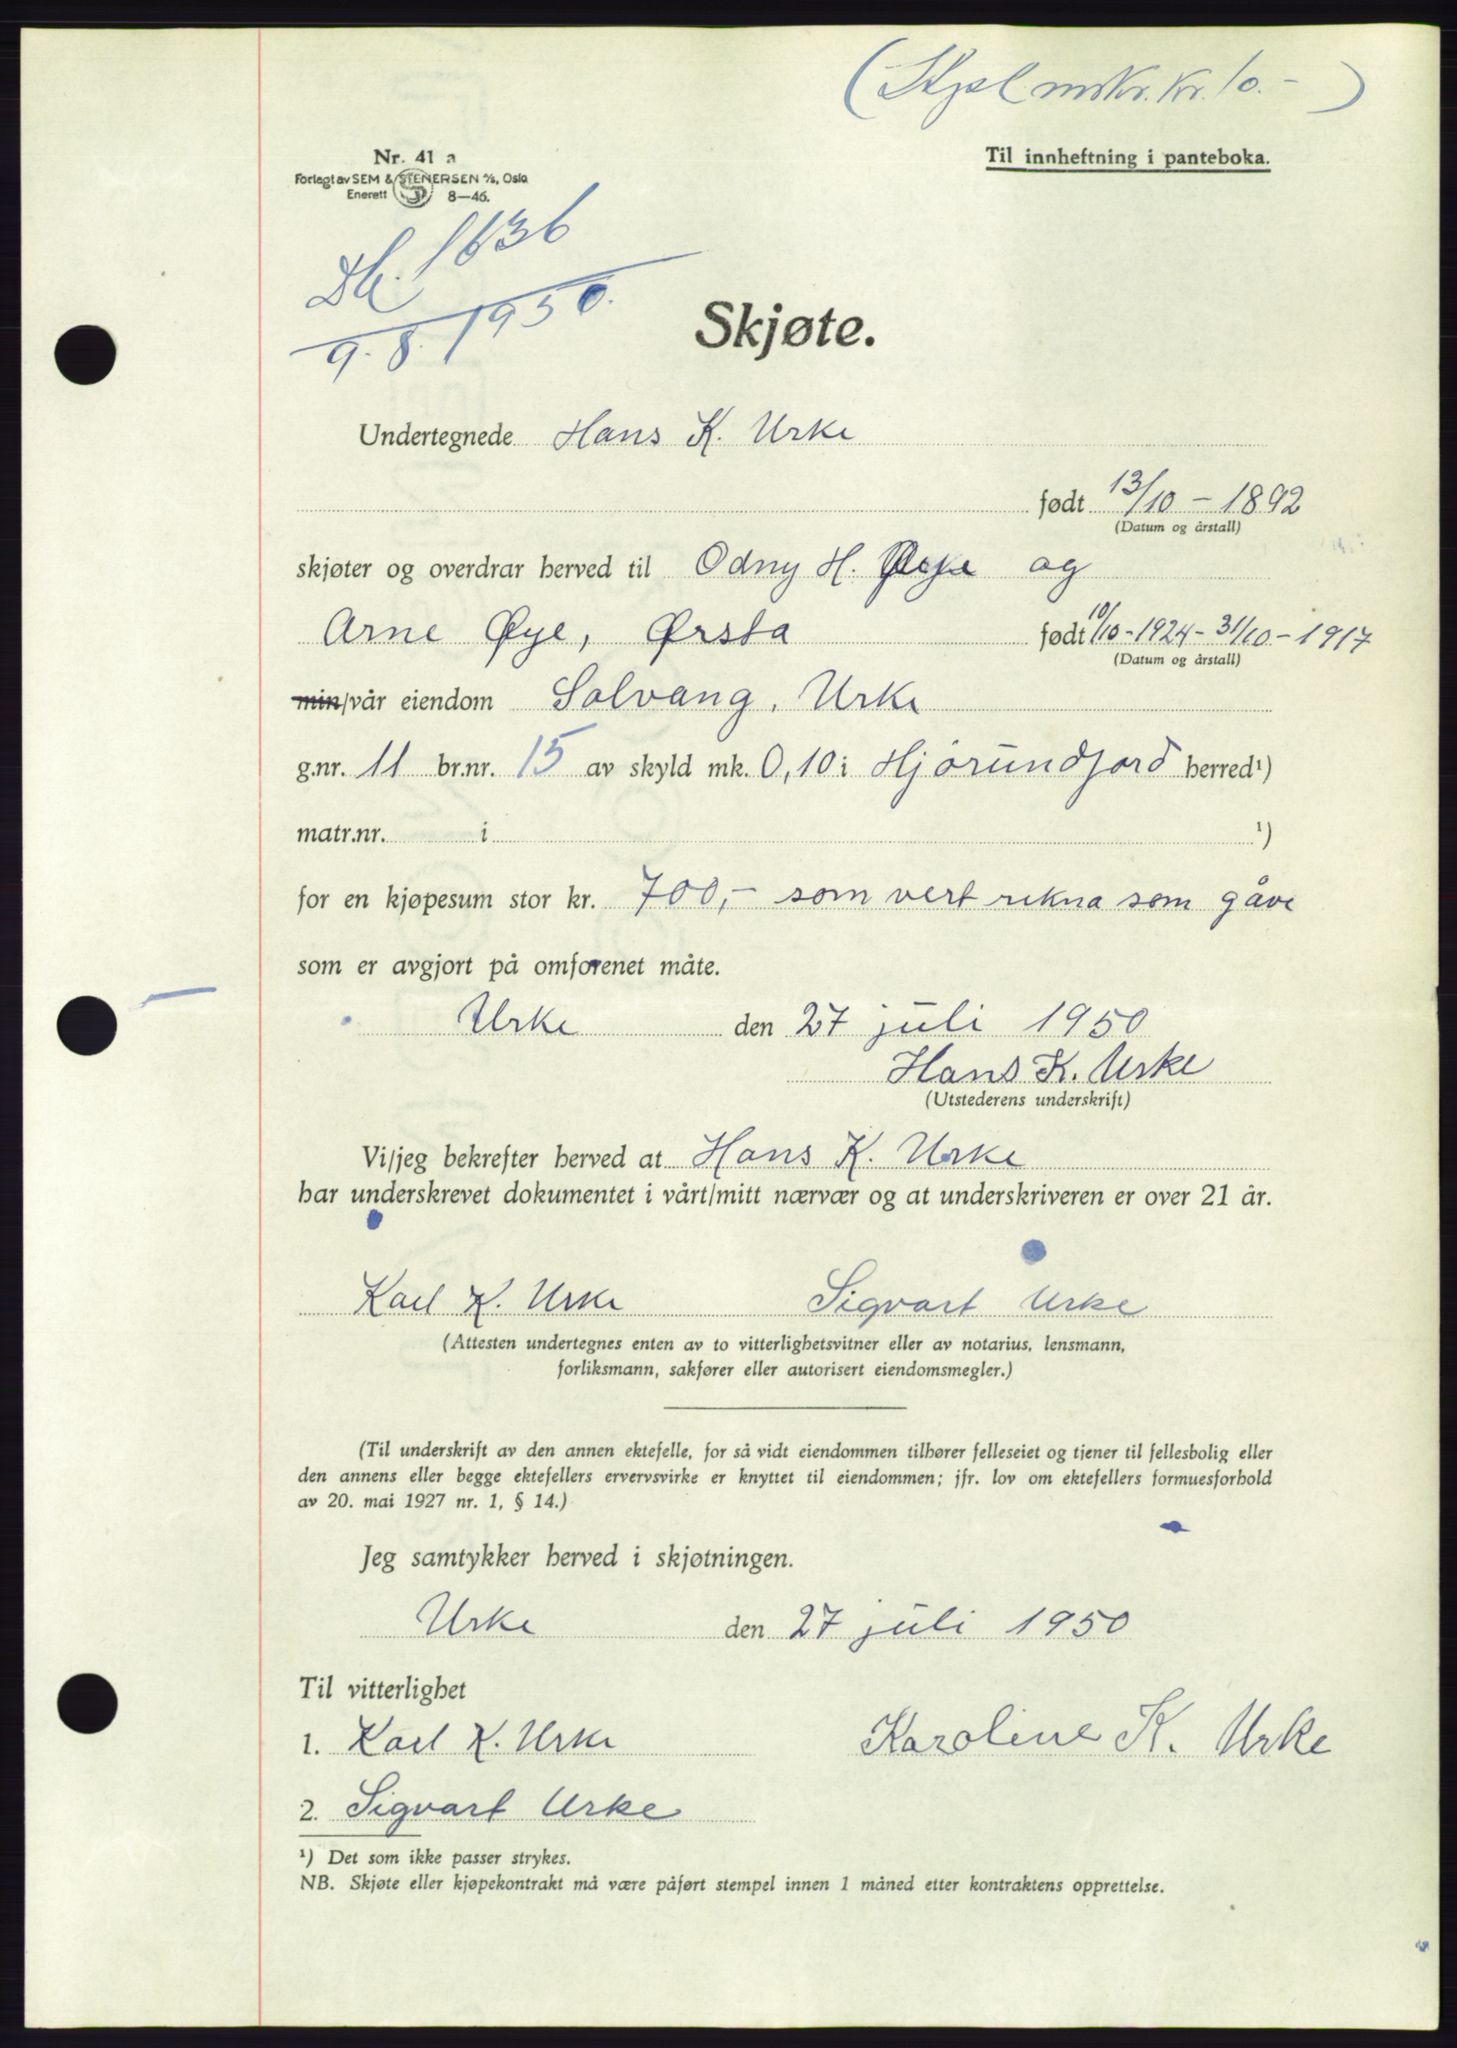 ( Stpl mrkr. kr. 10.- )
Nr. 41 a
Til innheftning i panteboka.
Forlagt av SEM & STENERSEN A/S, Oslo
Enerett 8—46.
Db. 1636
9.8. 1950.
Skjøte.
Undertegnede Hans K. Urke
født 13/10 - 1892
(Datum og årstall)
skjøter og overdrar herved til Odny H. Øye og
Arne Øye, Ørsta født 10/10-1924 - 31/10-1917
(Datum og årstall)
min/vår eiendom Solvang, Urke
g.nr. 11 br.nr. 15 av skyld mk. 0,10 i Hjørundfjord herred¹)
matr.nr. i ¹)
for en kjøpesum stor kr. 700,- som vert rekna som gåve
som er avgjort på omforenet måte.
Urke den 27 juli 1950
Hans K. Urke
(Utstederens underskrift)
Vi/jeg bekrefter herved at Hans K. Urke
har underskrevet dokumentet i vårt/mitt nærvær og at underskriveren er over 21 år.
Karl K. Urke Sigvart Urke
(Attesten undertegnes enten av to vitterlighetsvitner eller av notarius, lensmann,
forliksmann, sakfører eller autorisert eiendomsmegler.)
(Til underskrift av den annen ektefelle, for så vidt eiendommen tilhører felleseiet og tjener til fellesbolig eller
den annens eller begge ektefellers ervervsvirke er knyttet til eiendommen; jfr. lov om ektefellers formuesforhold
av 20. mai 1927 nr. 1, § 14.)
Jeg samtykker herved i skjøtningen.
Urke den 27 juli 1950
Til vitterlighet
1. Karl K. Urke Karoline K. Urke
2. Sigvart Urke
¹) Det som ikke passer strykes.
NB. Skjøte eller kjøpekontrakt må være påført stempel innen 1 måned etter kontraktens opprettelse.